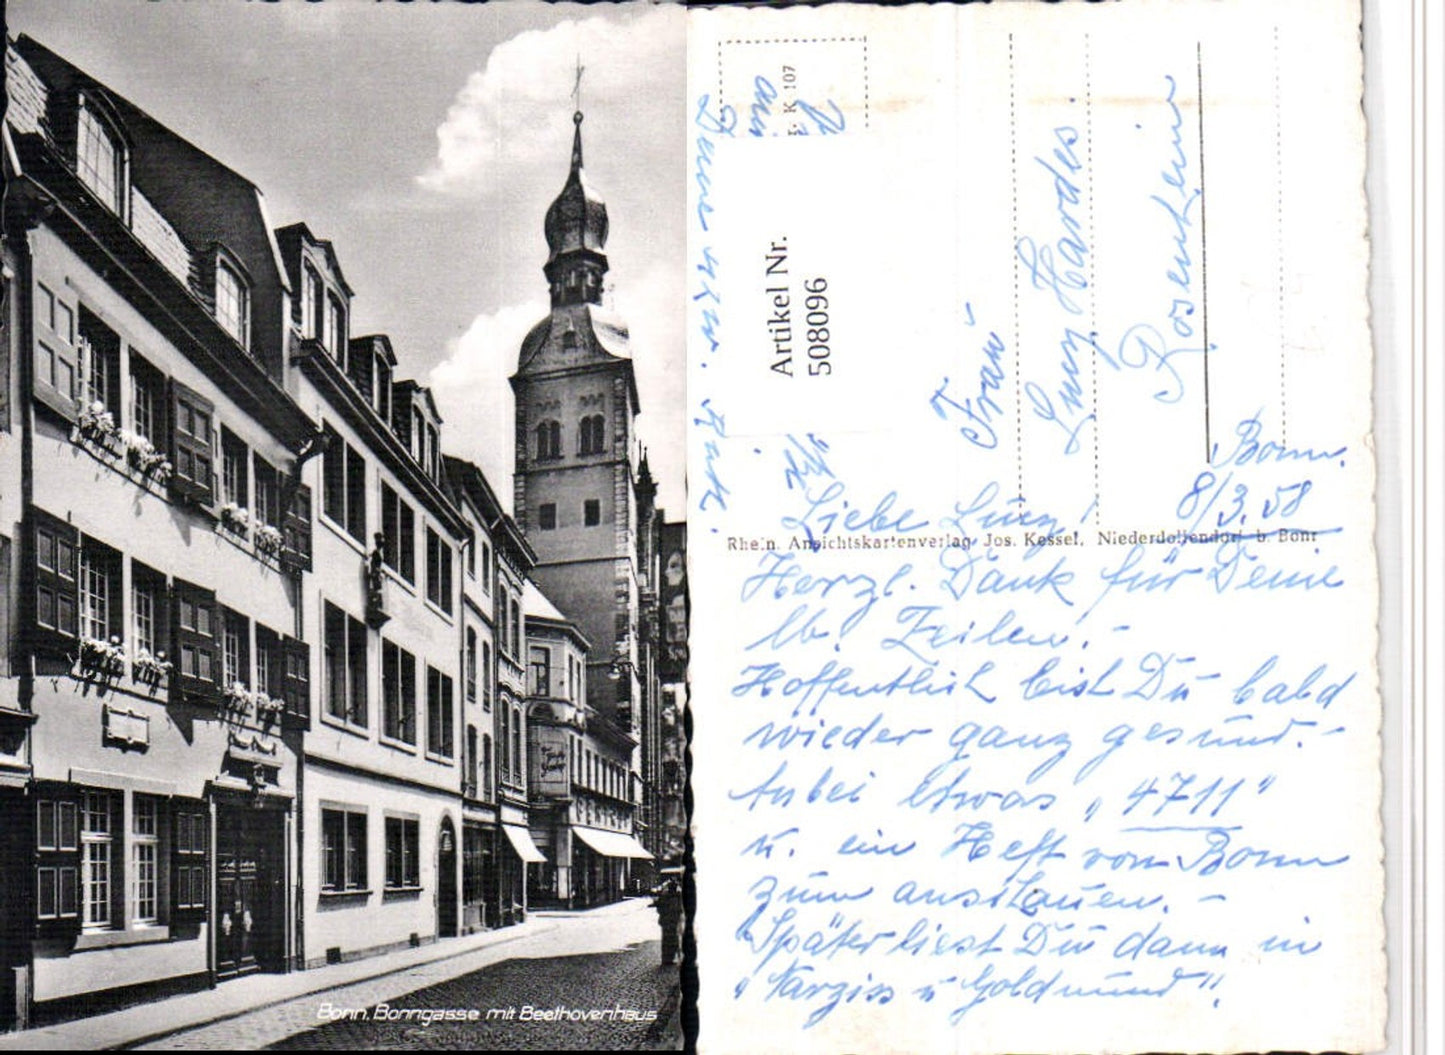 Bonn, Bonngasse mit Beethovenhaus
K 107
Artikel Nr.
508096
Frau
Luzy Hardes.
Rosenheim
Bonn.
8/3.58
Liebe Luzy!
Rhein. Ansichtskartenverlag Jos. Kessel, Niederdollendorf b. Bonn
Herzl. Dank für Deine
lb. Zeilen.-
Hoffentlich bist Du bald
wieder ganz gesund.-
Anbei etwas "4711"
u. ein Heft von Bonn
zum anschauen.-
Später liest Du dann in
"Narziss u Goldmund".
Deine